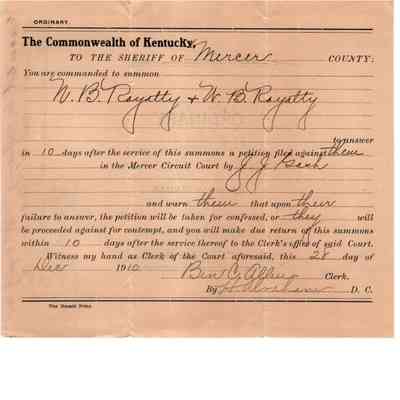 ORDINARY.
The Commonwealth of Kentucky,
TO THE SHERIFF OF Mercer COUNTY:
You are commanded to summon
W. B. Royalty + W. B. Royalty
to answer
in 10 days after the service of this summons a petition filed against them
in the Mercer Circuit Court by J J
and warn them that upon their
failure to answer, the petition will be taken for confessed, or they will
be proceeded against for contempt, and you will make due return of this summons
within 10 days after the service thereof to the Clerk's office of said Court.
Witness my hand as Clerk of the Court aforesaid, this 28 day of
Dec 1910 Ben C Allin Clerk.
By D. C.